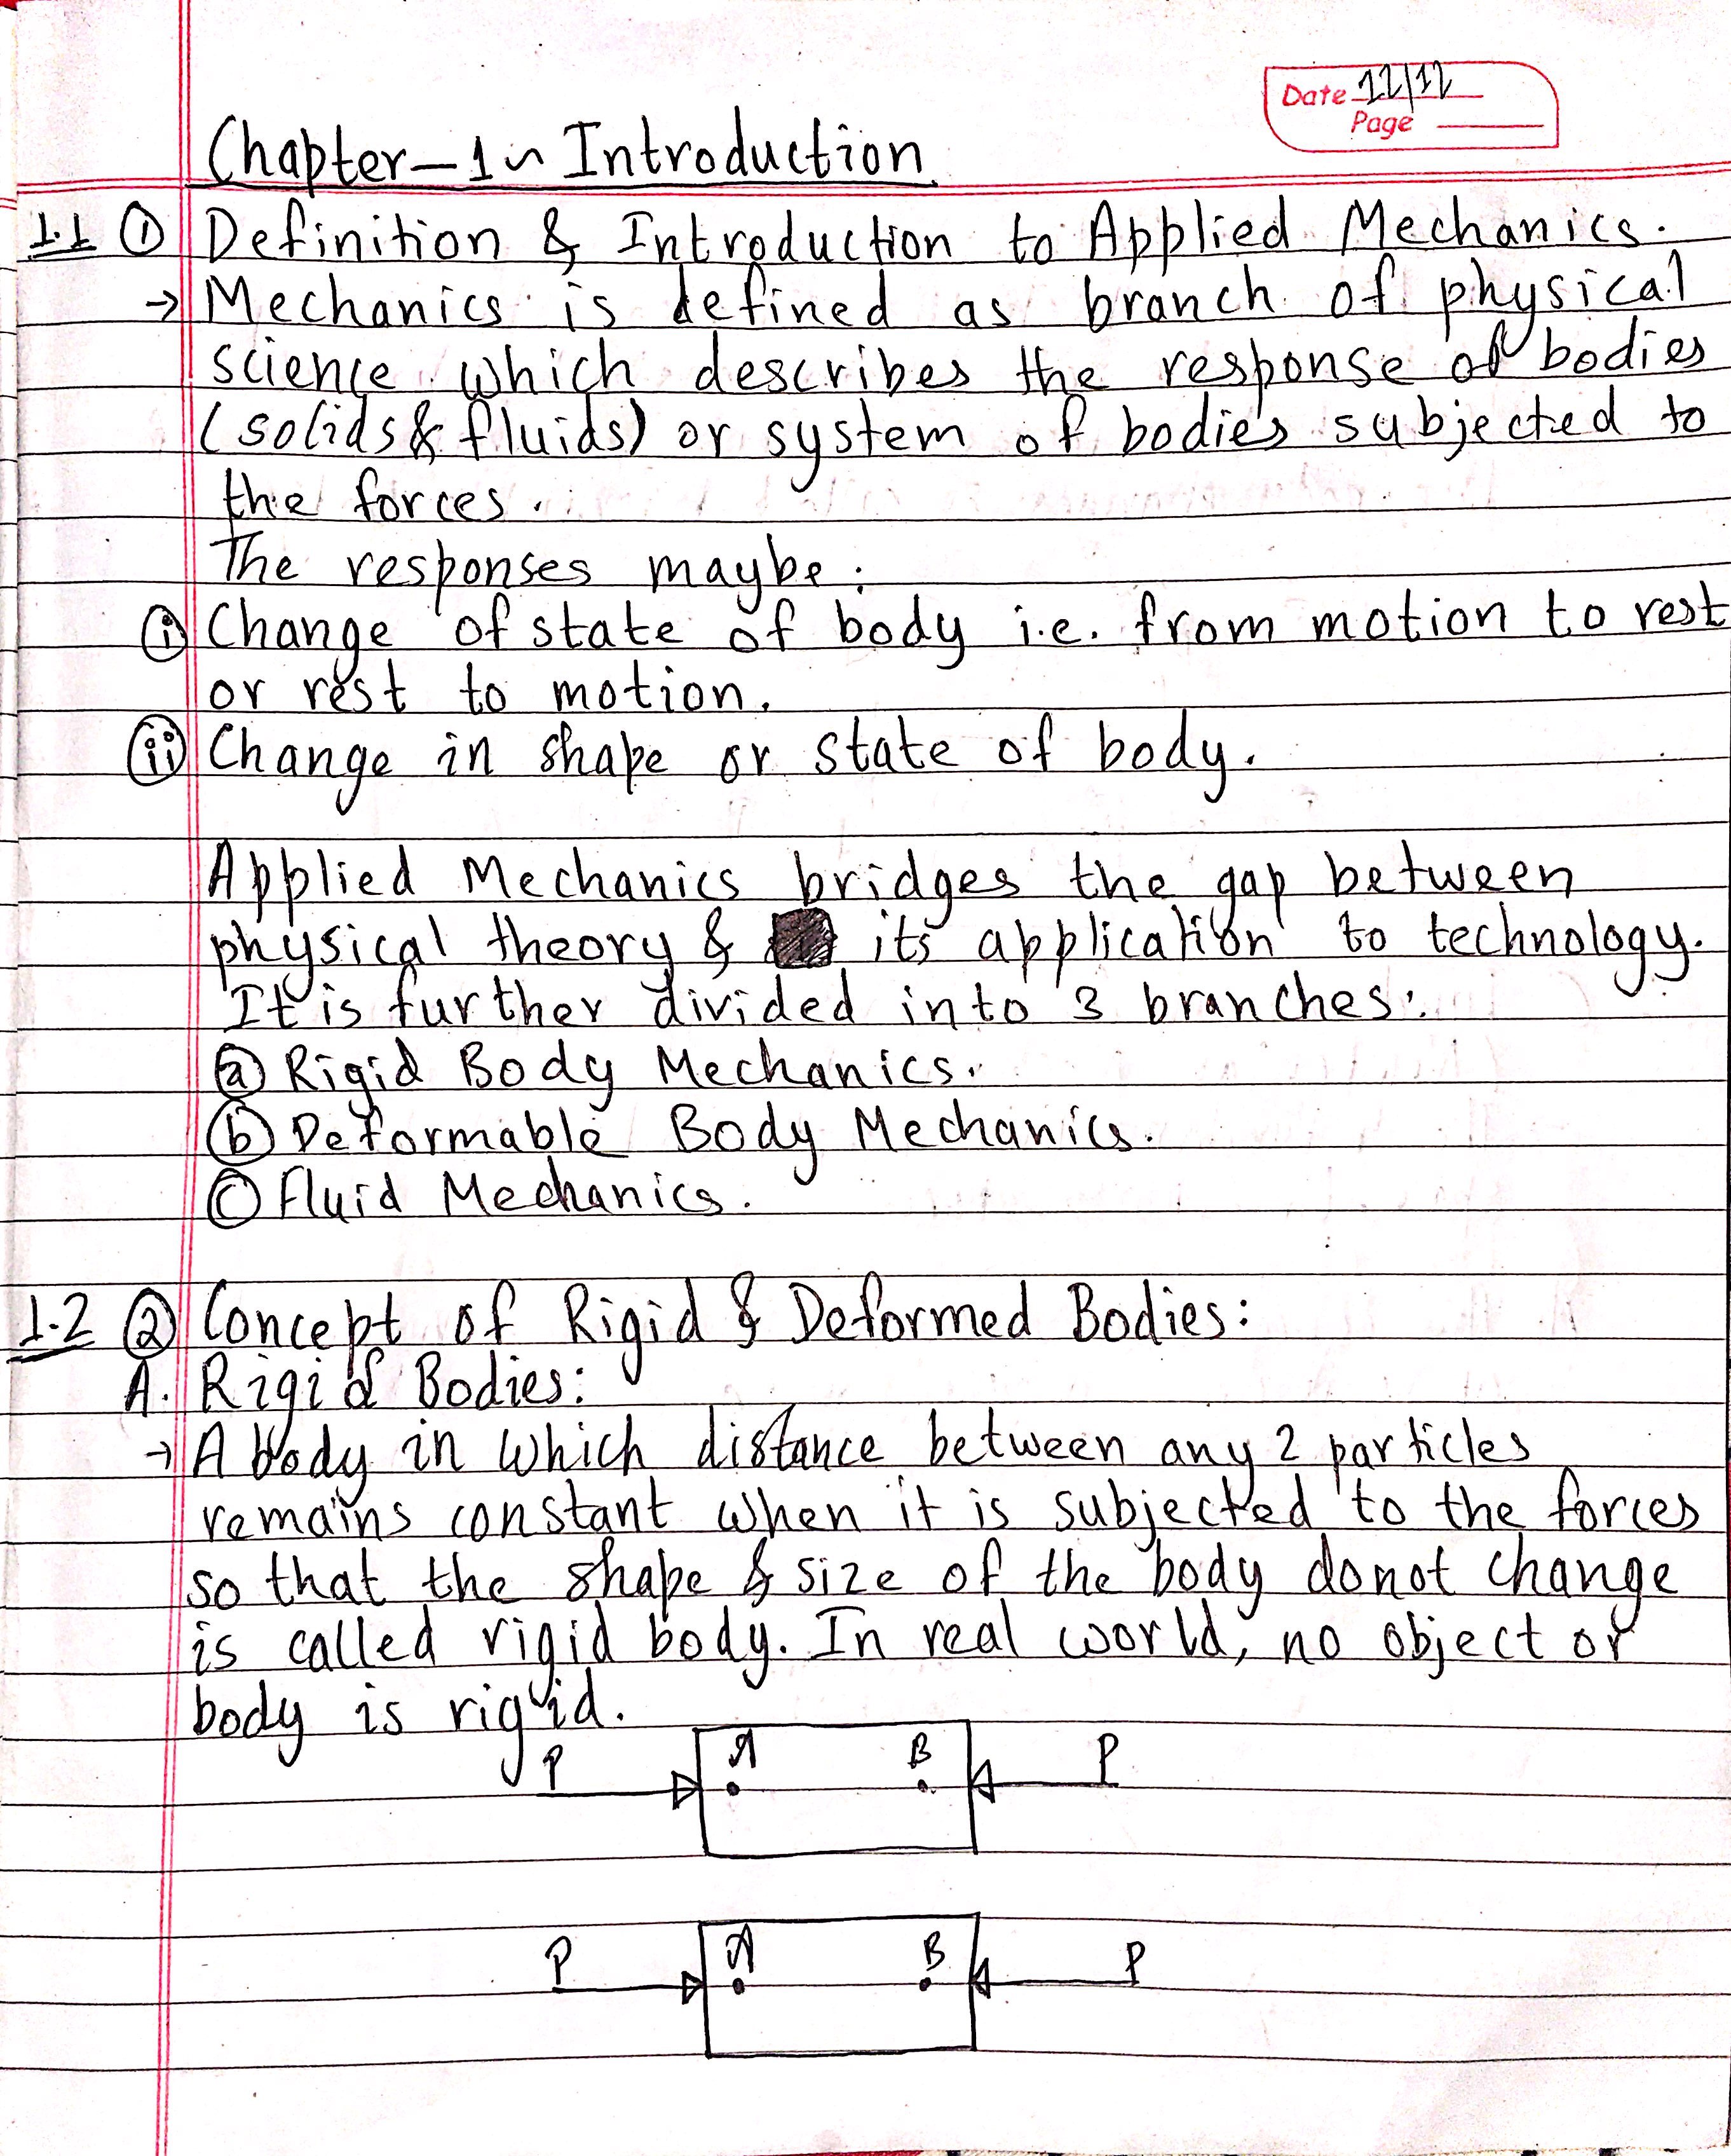 Date 12/12
Page
Chapter-1 ~ Introduction
1.1 ① Definition & Introduction to Applied Mechanics.
→ Mechanics is defined as branch of physical
science which describes the response of bodies
(solids & fluids) or system of bodies subjected to
the forces.
The responses maybe:
ⓘ Change of state of body i.e. from motion to rest
or rest to motion.
ⓘⓘ Change in shape or state of body.
Applied Mechanics bridges the gap between
physical theory & its application to technology.
It is further divided into 3 branches:
ⓐ Rigid Body Mechanics.
ⓑ Deformable Body Mechanics.
ⓒ Fluid Mechanics.
1.2 ② Concept of Rigid & Deformed Bodies:
A. Rigid Bodies:
→ A body in which distance between any 2 particles
remains constant when it is subjected to the forces
so that the shape & size of the body donot change
is called rigid body. In real world, no object or
body is rigid.
P A B P
P A B P